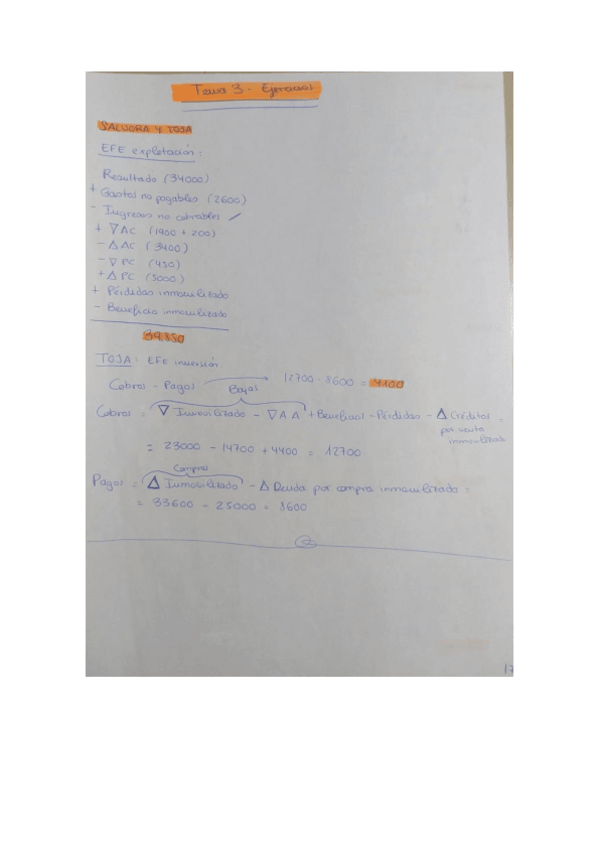 Tema 3 - Ejercicios
SALVORA Y TOJA
EFE explotación:
Resultado (34000)
+ Gastos no pagables (2600)
- Ingresos no cobrables
+ ∇ AC (1900 + 200)
- Δ AC (3400)
- ∇ PC (450)
+ Δ PC (5000)
+ Pérdidas inmovilizado
- Beneficio inmovilizado
39.850
TOJA: EFE inversión
Cobros - Pagos → 12700 - 8600 = 4100
Bajas
Cobros = ∇ Inmovilizado - ∇ A.A + Beneficios - Pérdidas - Δ Créditos
por venta
inmovilizado
= 23000 - 14700 + 4400 = 12700
Compras
Pagos = Δ Inmovilizado - Δ Deuda por compra inmovilizado =
= 33600 - 25000 = 8600
17